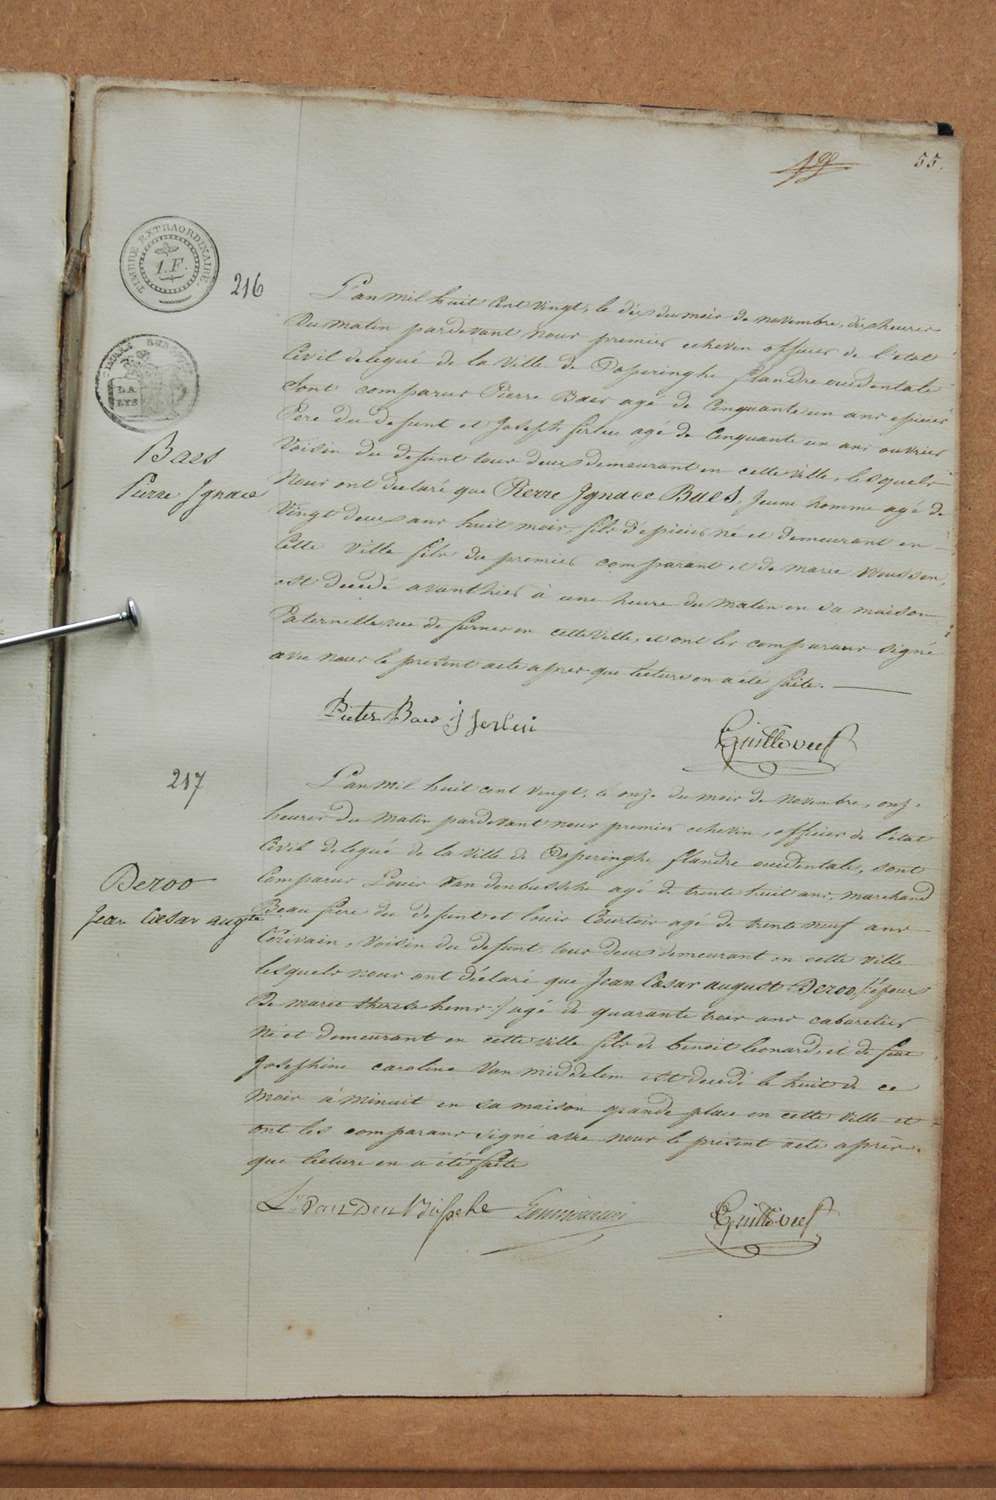 55.
TIMBRE EXTRAORDINAIRE.
1.F.
LA
LYS
216
Baes
Pierre Ignace
L'an mil huit cent vingt, le dix du mois de novembre, dix heures
du matin pardevant nous premier echevin officier de l'etat
Civil delegué de la ville de Poperinghe flandre occidentale
Sont comparus Pierre Baes agé de Cinquante un ans epicier
Pere du defunt et Joseph agé de Cinquante un ans ouvrier
Voisin du defunt tous deux demeurant en cette ville, lesquels
Nous ont declaré que Pierre Ignace Baes, Jeune homme agé de
Vingt deux ans huit mois, fils d'epicier né et demeurant en
Cette Ville fils du premier comparant et de marie
est decedé avanthier à une heure du matin en sa maison
Paternelle rue de furnes en cette ville, et ont les comparans signé
avec nous le present acte apres que lecture en a été faite.
Pieter Baes J
217
Deroo
Jean Cæsar augte
L'an mil huit cent vingt, le onze du mois de Novembre, onze
heures du matin pardevant nous premier echevin, officier de l'etat
Civil delegué de la ville de Poperinghe flandre occidentale, sont
Comparus Louis Vandenbussche agé de trente huit ans, marchand
Beau frere du defunt et louis Courtois agé de trente neuf ans
Ecrivain, Voisin du defunt, tous deux demeurant en cette ville
lesquels nous ont déclaré que Jean Cæsar august Deroo /:époux
De marie therese :/ agé de quarante trois ans cabaretier
Né et demeurant en cette ville fils de benoit leonard, et de feue
Josephine caroline Van middelem est decedé le huit de ce
Mois à minuit en sa maison grande place en cette ville et
ont les comparans signé avec nous le present acte après
que lecture en a été faite
Ls Van Den Bussche